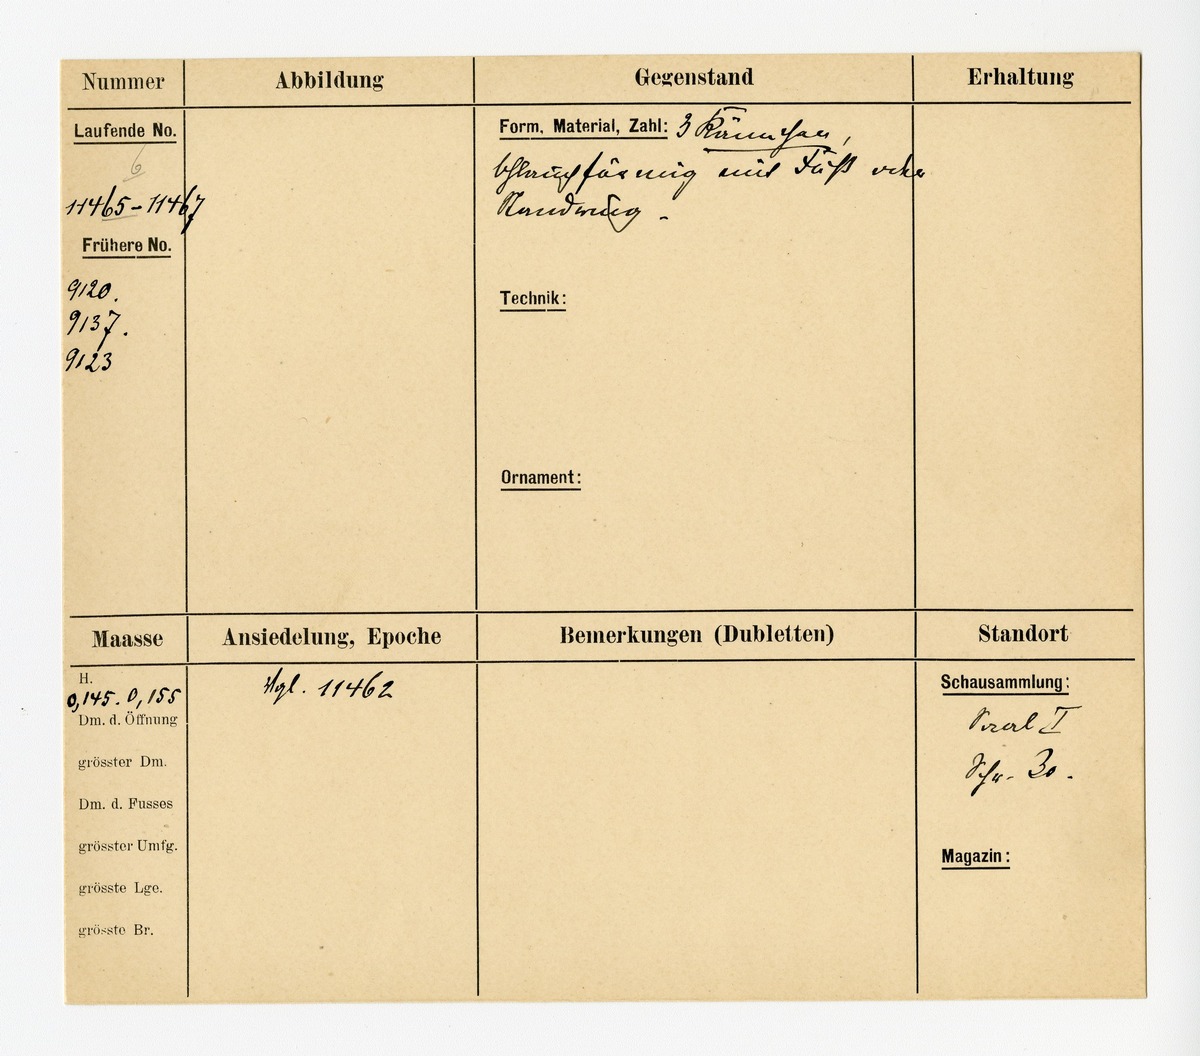 Nummer
Abbildung
Gegenstand
Erhaltung
Laufende No.
6
11465-11467
Frühere No.
9120.
9137.
9123
Form, Material, Zahl: 3 Kännchen,
mit Fuß oder
Technik:
Ornament:
Maasse
Ansiedelung, Epoche
Bemerkungen (Dubletten)
Standort
H.
0,145. 0,155
Dm. d. Öffnung
grösster Dm.
Dm. d. Fusses
grösster Umfg.
grösste Lge.
grösste Br.
Vgl. 11462
Schausammlung:
Saal II
Schr. 30.
Magazin: